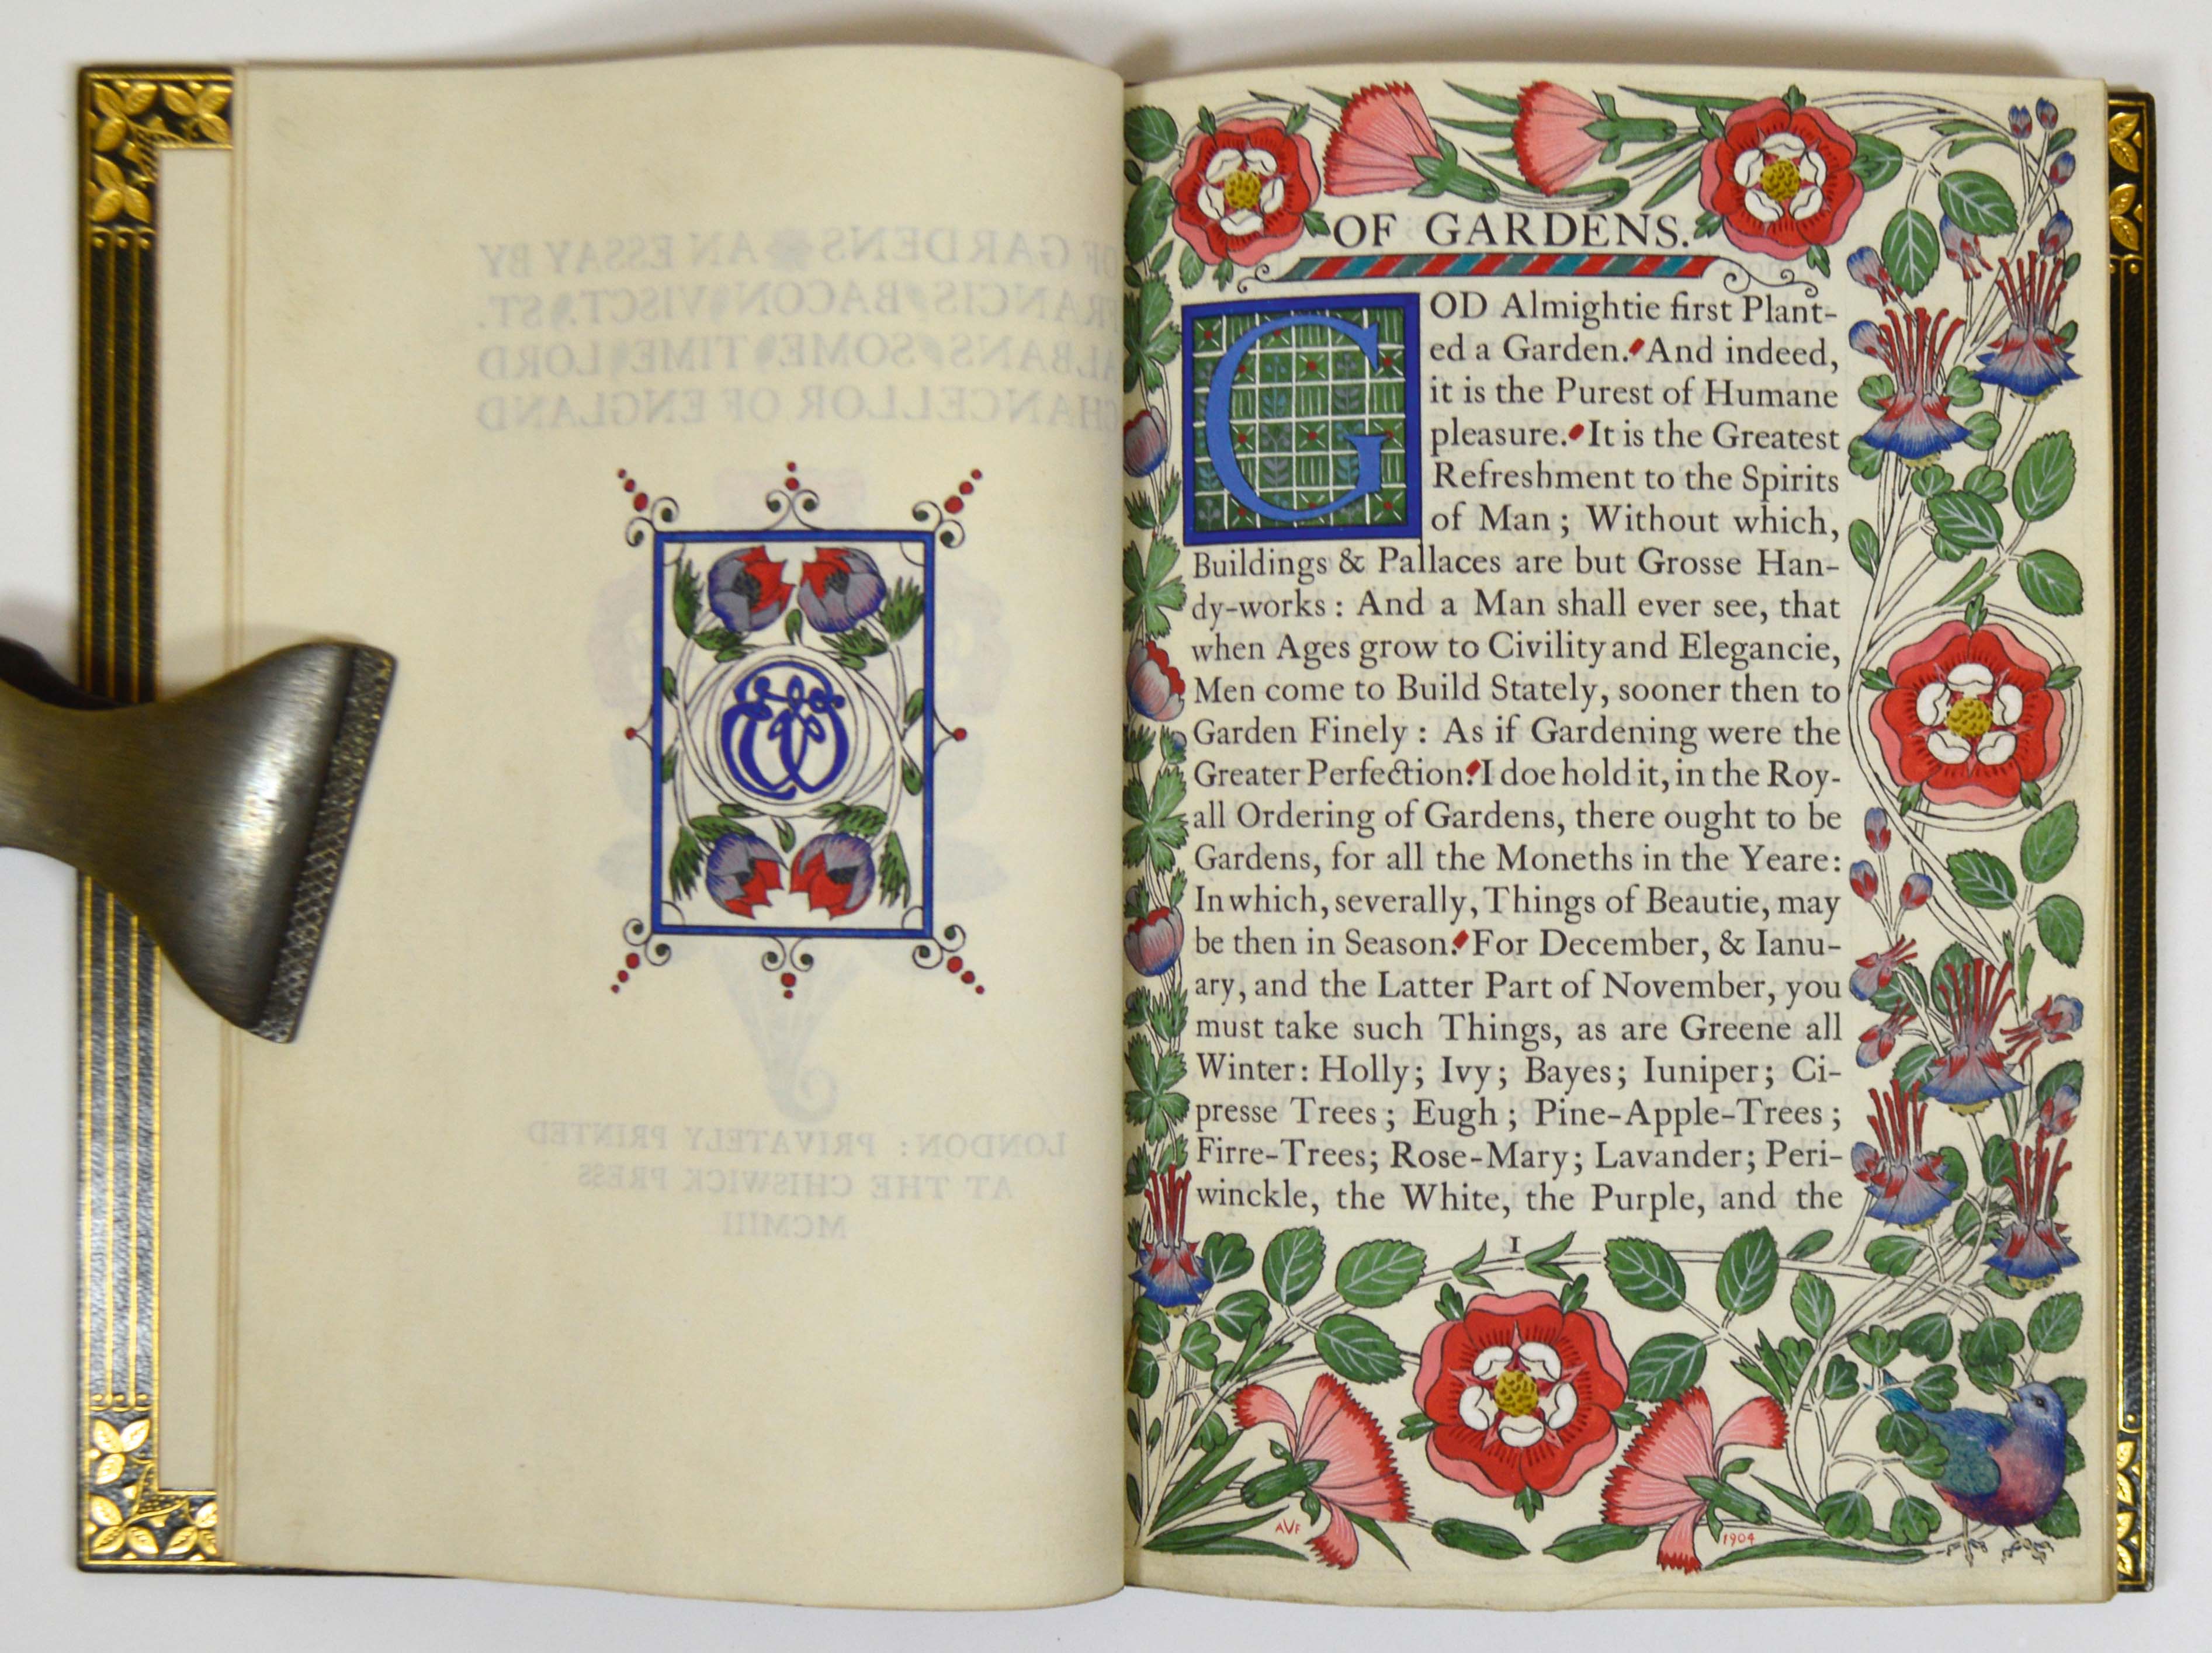 OF GARDENS AN ESSAY BY
FRANCIS BACON VISCT. ST.
ALBANS SOME TIME LORD
CHANCELLOR OF ENGLAND
LONDON: PRIVATELY PRINTED
AT THE CHISWICK PRESS
MCMIII
OF GARDENS.
GOD Almightie first Plant-
ed a Garden. And indeed,
it is the Purest of Humane
pleasure. It is the Greatest
Refreshment to the Spirits
of Man; Without which,
Buildings & Pallaces are but Grosse Han-
dy-works: And a Man shall ever see, that
when Ages grow to Civility and Elegancie,
Men come to Build Stately, sooner then to
Garden Finely: As if Gardening were the
Greater Perfection. I doe hold it, in the Roy-
all Ordering of Gardens, there ought to be
Gardens, for all the Moneths in the Yeare:
In which, severally, Things of Beautie, may
be then in Season. For December, & Ianu-
ary, and the Latter Part of November, you
must take such Things, as are Greene all
Winter: Holly; Ivy; Bayes; Iuniper; Ci-
presse Trees; Eugh; Pine-Apple-Trees;
Firre-Trees; Rose-Mary; Lavander; Peri-
winckle, the White, the Purple, and the
1
AVF
1904